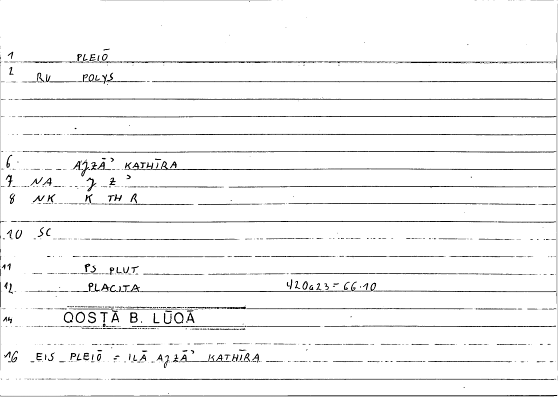 1 PLEIŌ
2 RU POLYS
6 AJZĀʾ KATHĪRA
7 NA J Z ʾ
8 NK K TH R
10 SC
11 PS PLUT
12 PLACITA 420a23=66.10
14 QOSṬĀ B. LŪQĀ
16 EIS PLEIŌ = ILĀ AJZĀʾ KATHĪRA